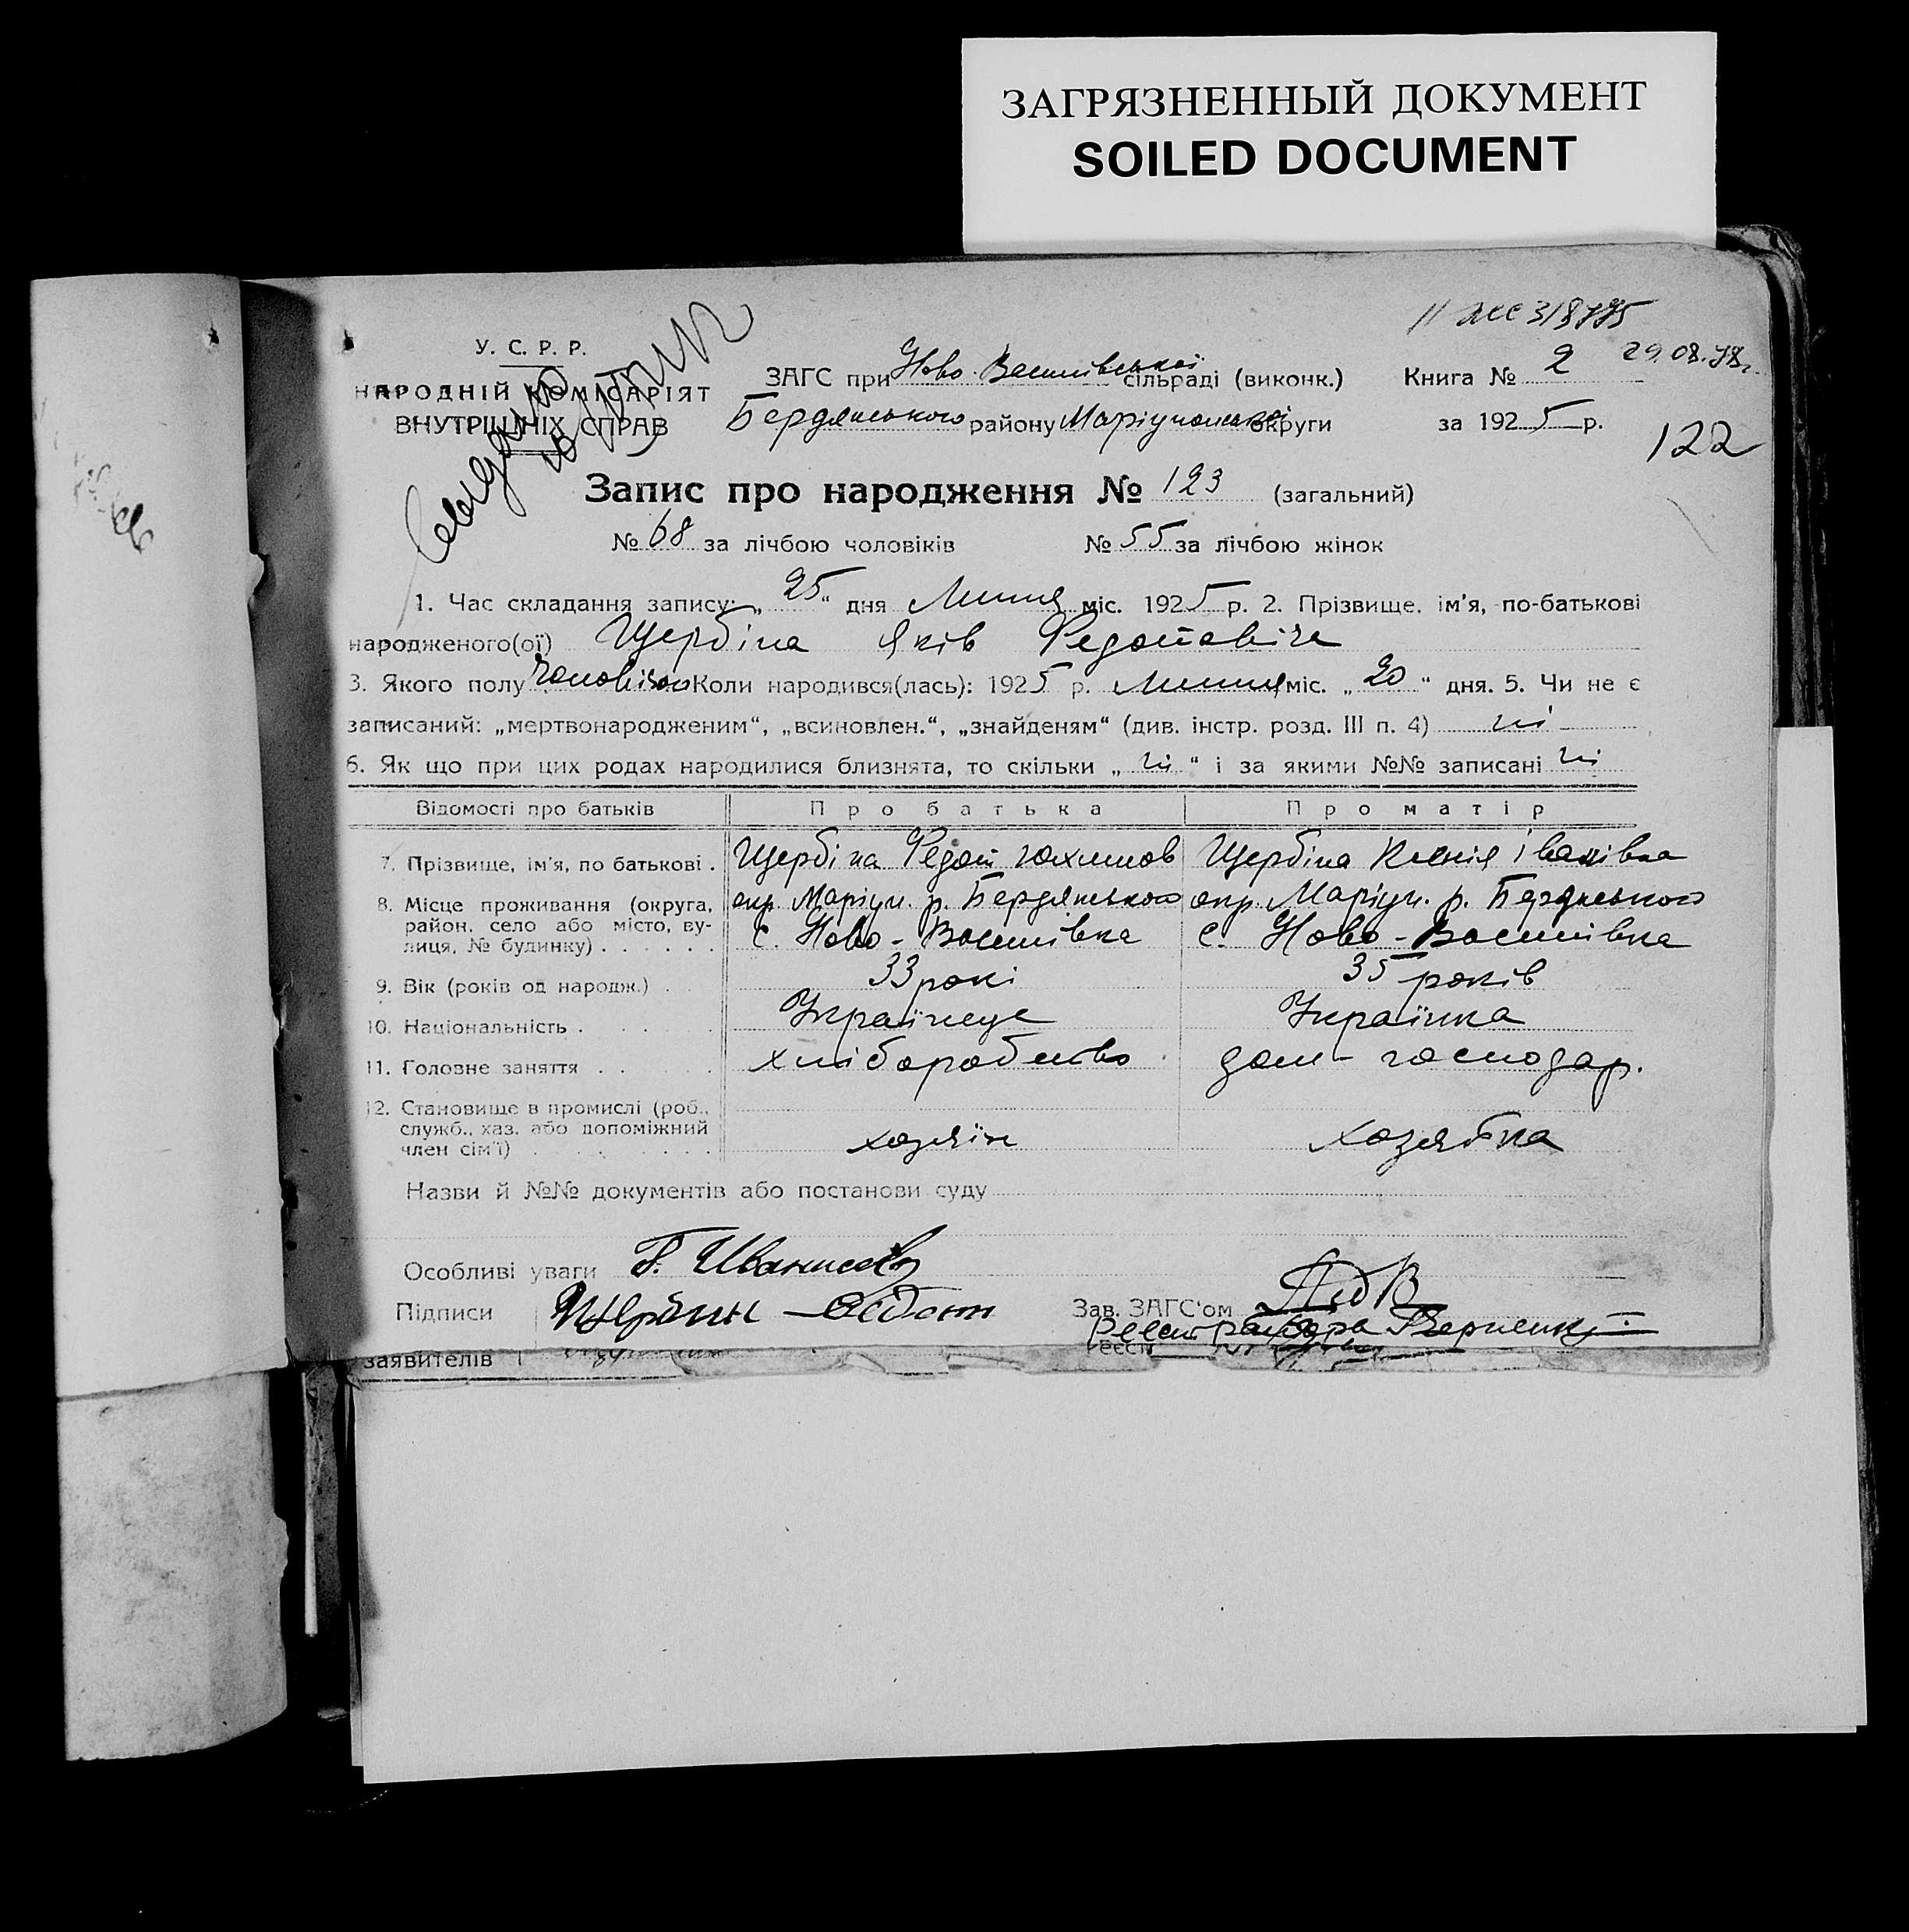 ЗАГРЯЗНЕННЫЙ ДОКУМЕНТ
SOILED DOCUMENT
29.08.78г.
У. С. Р. Р.
НАРОДНІЙ КОМІСАРІЯТ
ВНУТРІШНІХ СПРАВ
ЗАГС при Ново-Василівської сільраді (виконк.) Книга № 2
Бердянського району Маріупольської округи за 1925 р.
122
Запис про народження № 123 (загальний)
№ 68 за лічбою чоловіків № 55 за лічбою жінок
1. Час складання запису: „25“ дня Липня міс. 1925 р. 2. Прізвище, ім'я, по-батькові
народженого(ої) Щербіна Яків Федотовіч
3. Якого полу Коли народився(лась): 1925 р. Липня міс. „20“ дня. 5. Чи не є
записаний: „мертвонародженим“, „всиновлен.“, „знайденям“ (див. інстр. розд. III п. 4) ні
6. Як що при цих родах народилися близнята, то скільки „ні“ і за якими №№ записані ні
Відомості про батьків Про батька Про матір
7. Прізвище, ім'я, по батькові . Щербіна Федот Юхимов Щербіна Ксенія Іванівна
8. Місце проживання (округа, район, село або місто, вулиця, № будинку) окр. Маріуп. р. Бердянського окр. Маріуп. р. Бердянського
с. Ново-Василівка с. Ново-Василівка
9. Вік (років од народж.) 33 рокі 35 років
10. Національність Українець Українка
11. Головне заняття хліборобство дом-господар.
12. Становище в промислі (роб., служб., хаз. або допоміжний член сім'ї) хозяїн хозяйка
Назви й №№ документів або постанови суду
Особливі уваги
Підписи Зав. ЗАГС'ом
заявителів